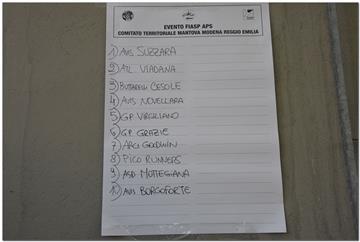 EVENTO FIASP APS
COMITATO TERRITORIALE MANTOVA MODENA REGGIO EMILIA
1) AVIS SUZZARA
2) ATL VIADANA
3) BUTTARELLI CESOLE
4) AVIS NOVELLARA
5) GP VIRGILIANO
6) G.P. GRAZIE
7) ARCI GOODWIN
8) PICO RUNNERS
9) ASD MOTTEGGIANA
10) AVIS BORGOFORTE